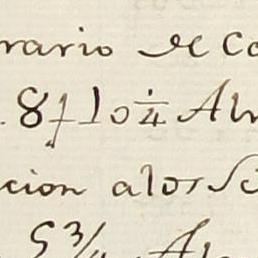 rario de Co
8ƒ 10 1/4 Al
cion alos Se
5 3/4 Al